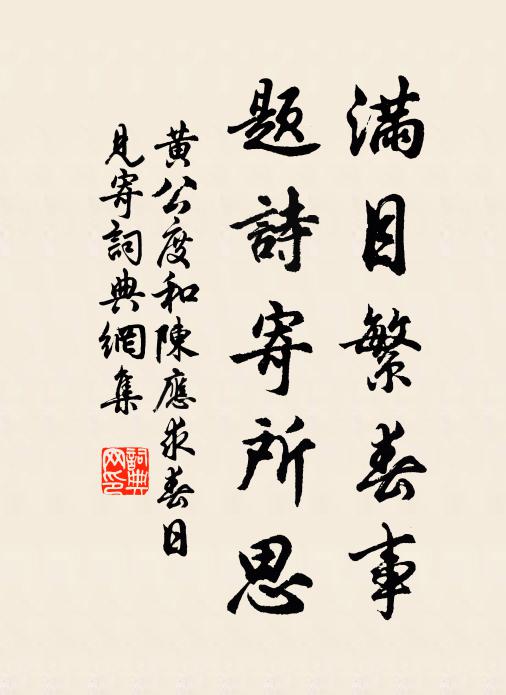 滿目繁春事
題詩寄所思
黃公度和陳應求春日
見寄詞典網集
詞典網印